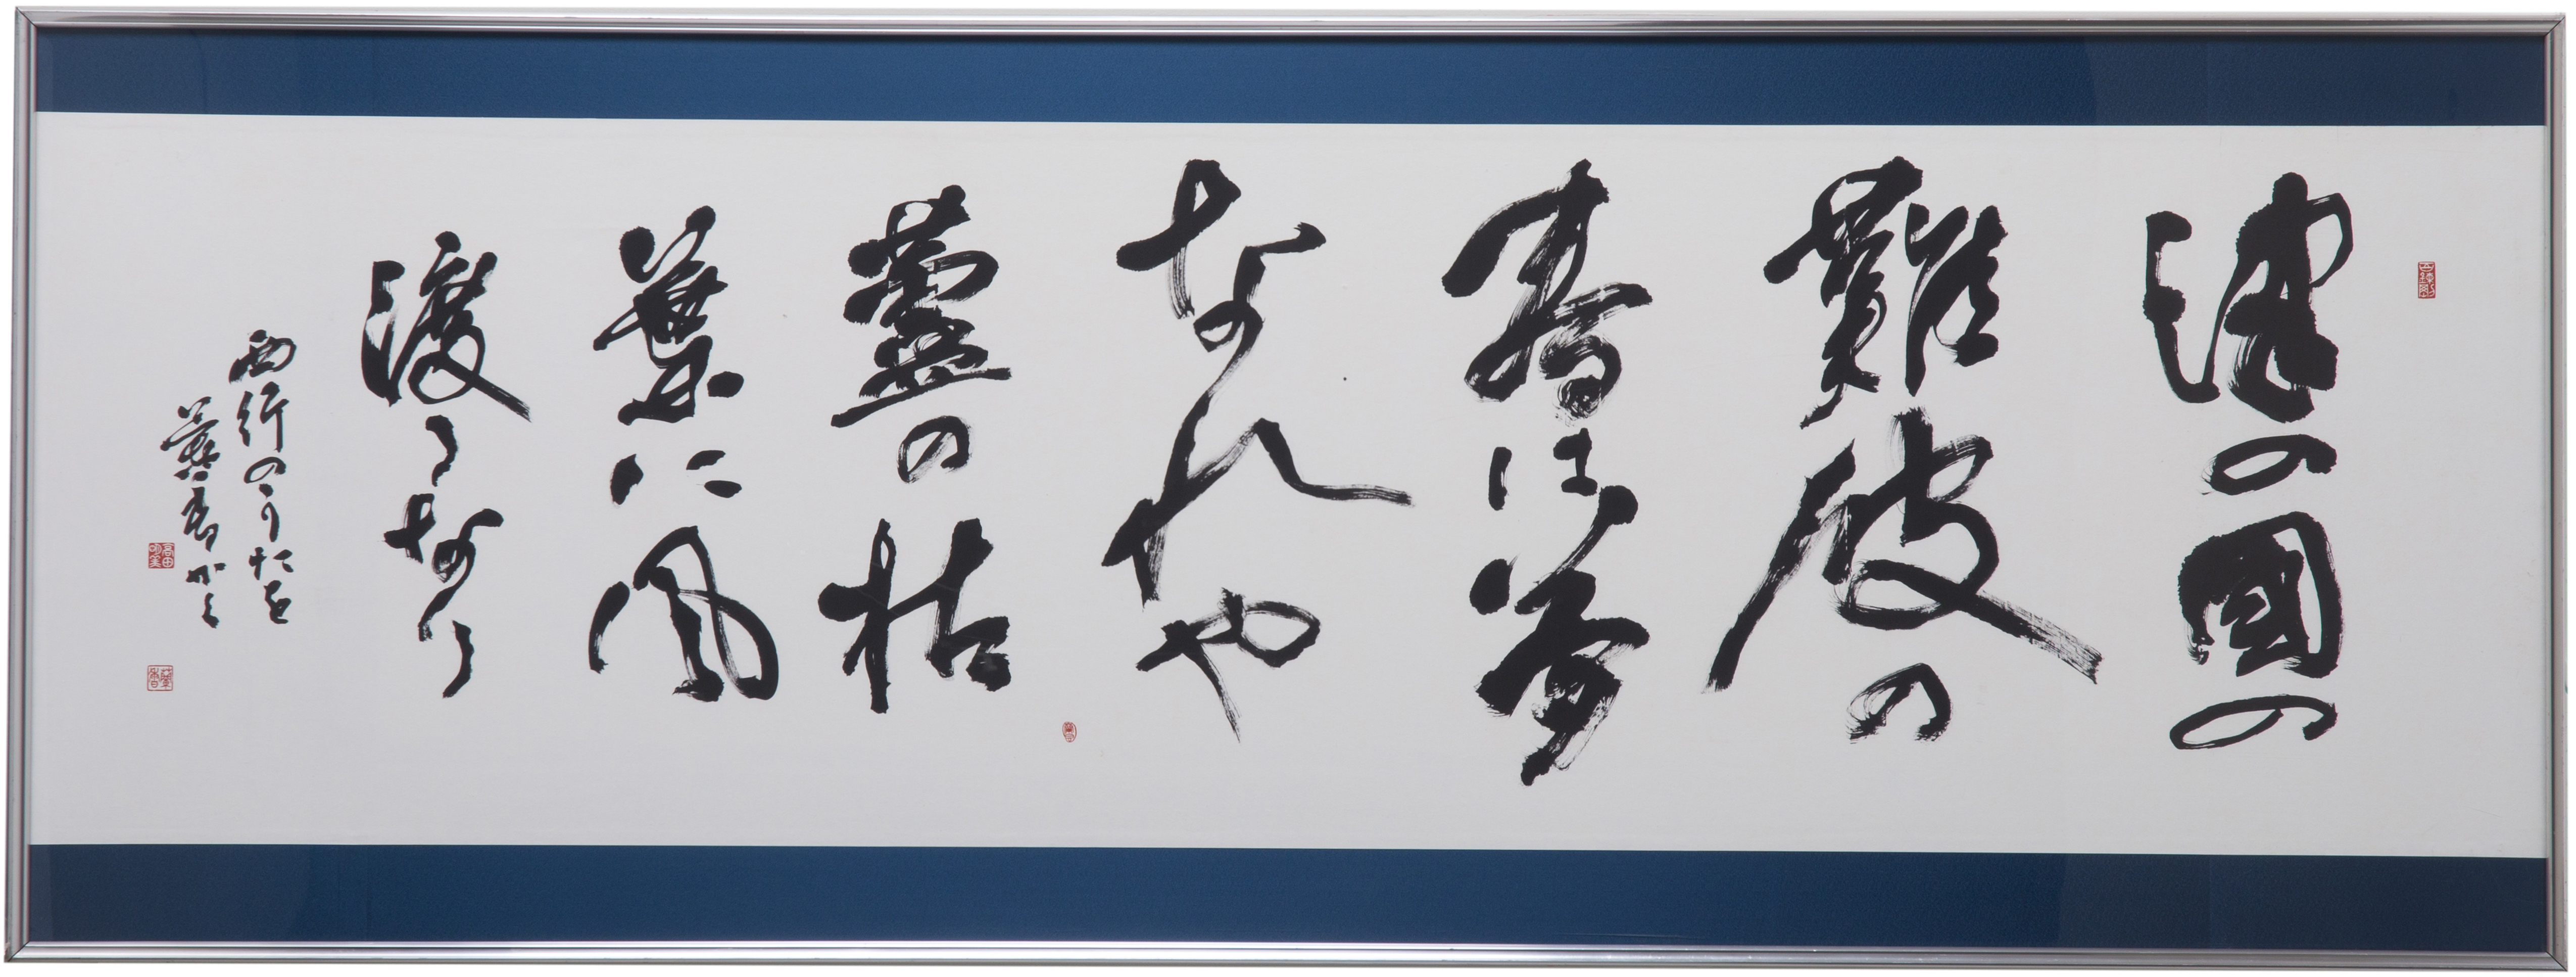 津の國の
難波の
春は夢
なれや
蘆の枯
葉に風
渡るなり
西行のうたを